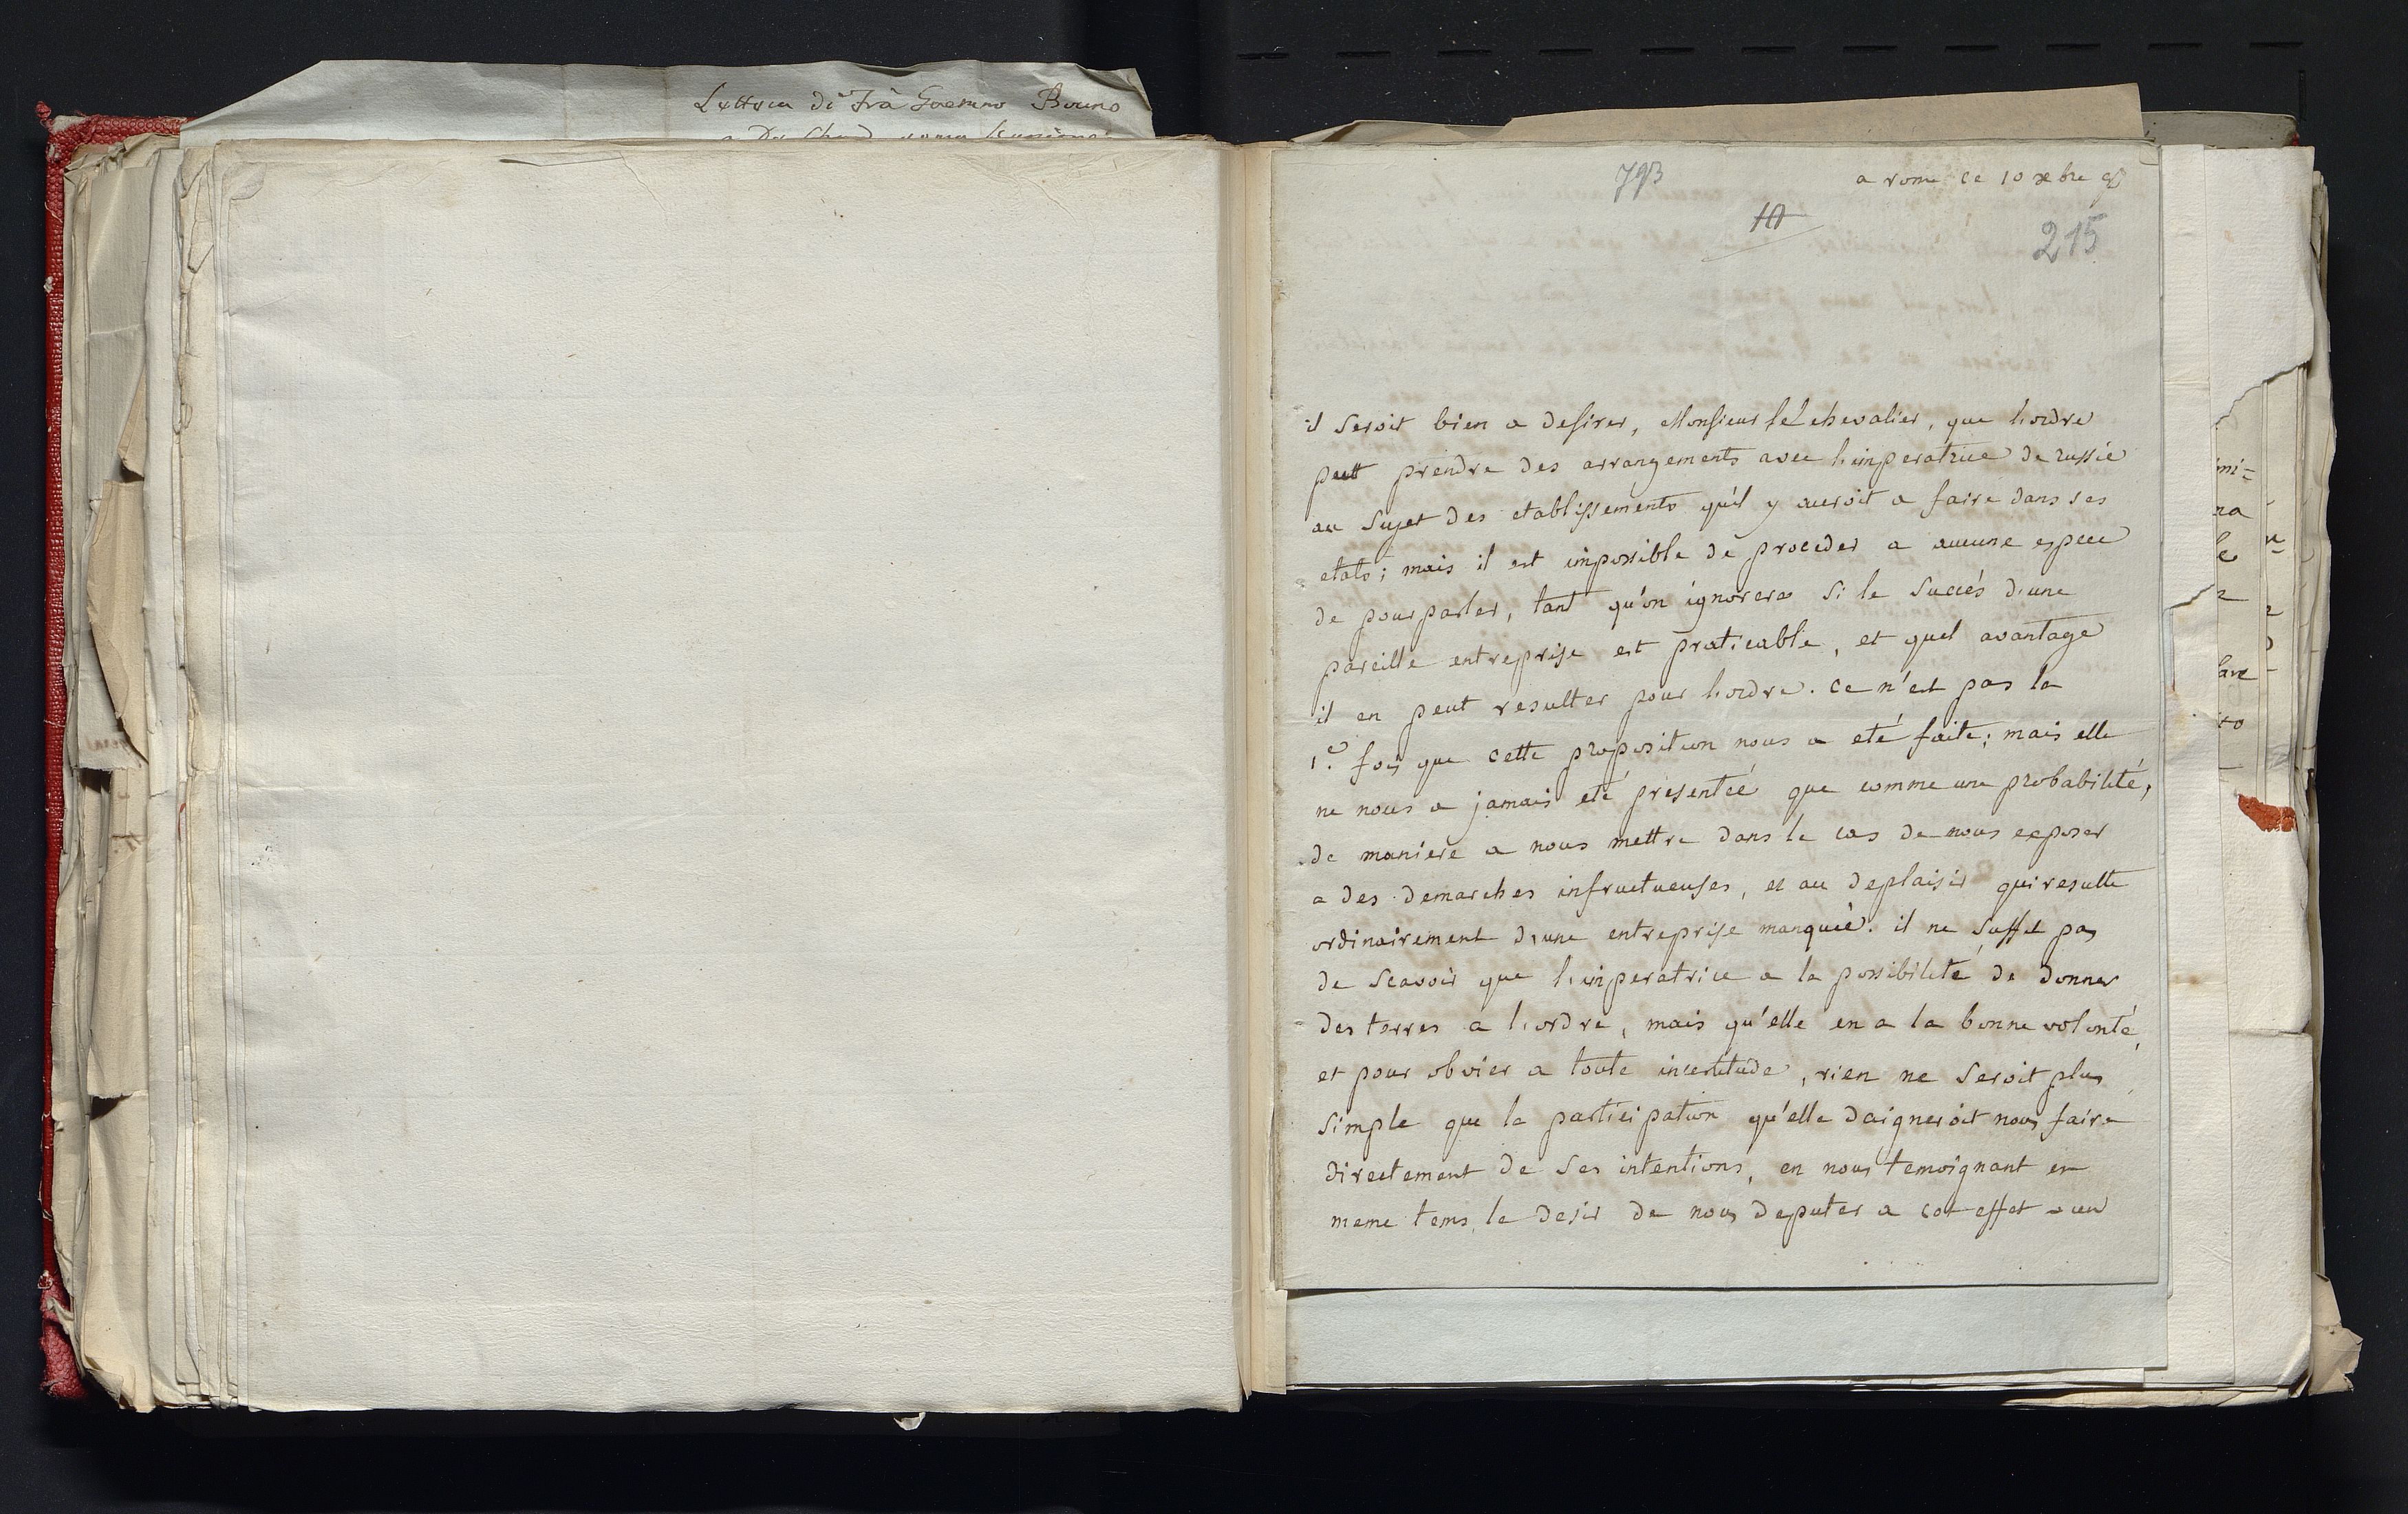 Lettera di Frà Gaetano Bruno
793
a rome ce 10 xbre
10
215
il seroit bien a desirer, Monsieur le chevalier, que l'ordre
peut prendre des arrangements avec l'imperatrice de russie
au sujet des etablissements qu'il y auroit a faire dans ses
etats; mais il est impossible de proceder a aucune espece
de pourparler, tant qu'on ignorera si le succés d'une
pareille entreprise est praticable, et quel avantage
il en peut resulter pour l'ordre. ce n'est pas la
1.e fois que cette proposition nous a eté faite; mais elle
ne nous a jamais eté presenteé que comme une probabilité,
de maniere a nous mettre dans le cas de nous exposer
a des demarches infructueuses, et au deplaisir qui resulte
ordinairement d'une entreprise manqueé. il ne suffit pas
de scavoir que l'imperatrice a la possibilité de donner
des terres a l'ordre, mais qu'elle en a la bonne volonté,
et pour obvier a toute incertitude, rien ne seroit plus
simple que la participation qu'elle daigneroit nous faire
directement de ses intentions, en nous temoignant en
meme tems, le desir de nous deputer a cet effet
mi=
na
le